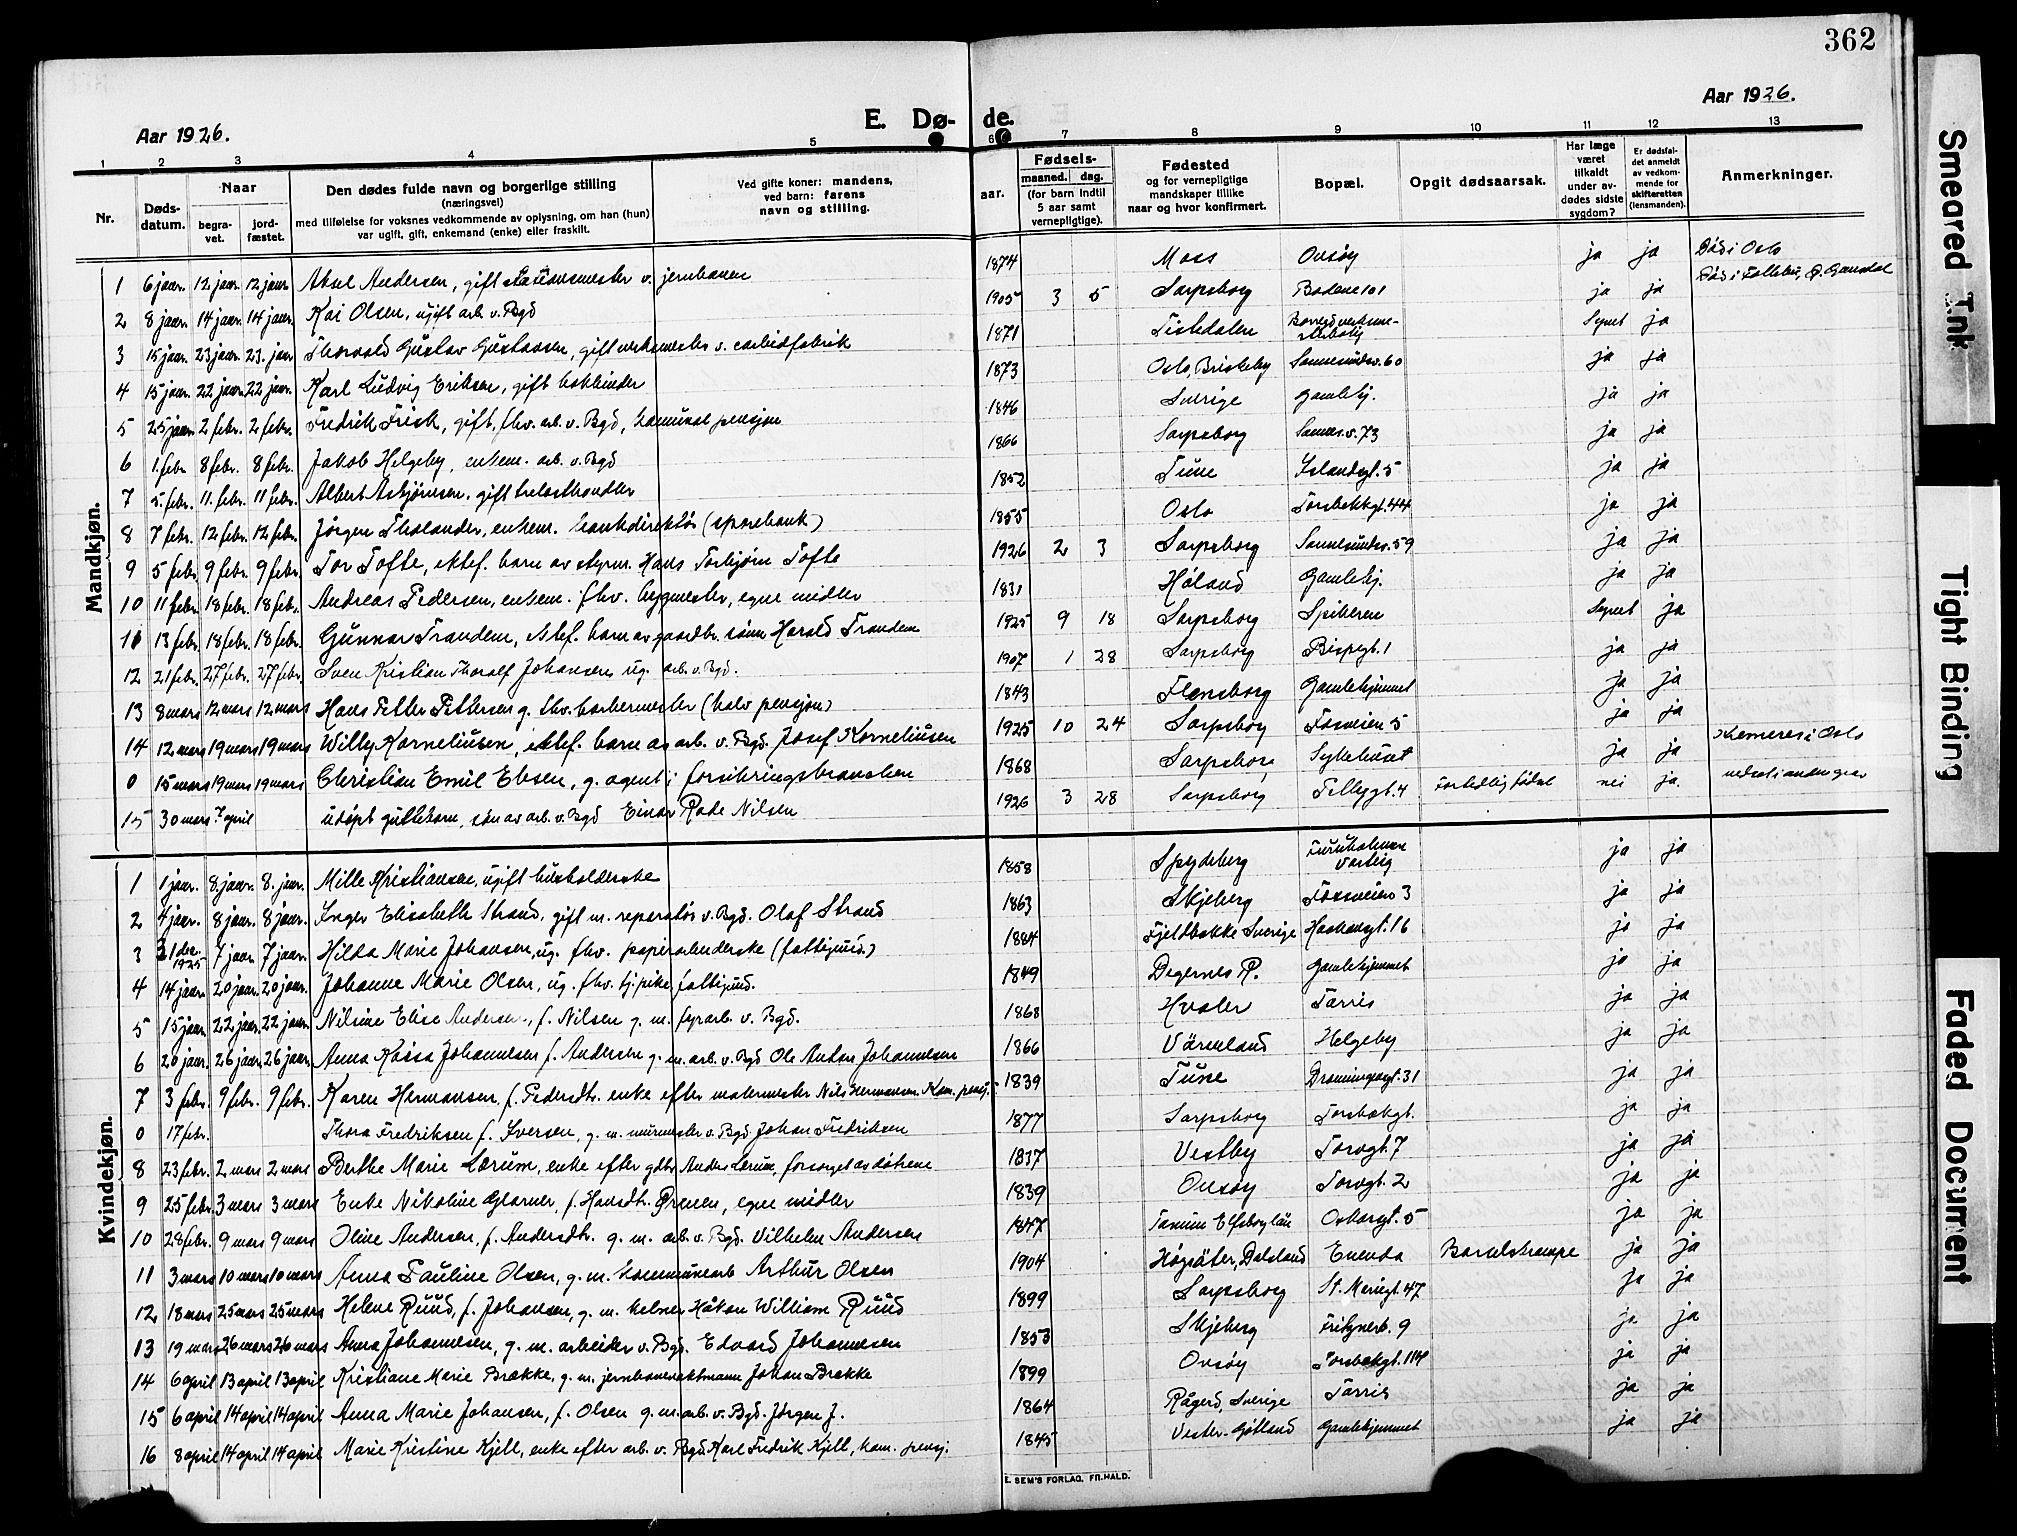 362
Aar 1926.
E. Dø- de.
Aar 1926.
1 2 3 4 5 6 7 8 9 10 11 12 13
Nr.
Døds-datum.
Naar
begra-vet.
jord-fæstet.
Den dødes fulde navn og borgerlige stilling
(næringsvei)
med tilføielse for voksnes vedkommende av oplysning, om han (hun)
var ugift, gift, enkemand (enke) eller fraskilt.
Ved gifte koner: mandens,
ved barn: farens
navn og stilling.
Fødsels-
aar.
maaned. dag.
(for barn indtil
5 aar samt
vernepligtige).
Fødested
og for vernepligtige
mandskaper tillike
naar og hvor konfirmert.
Bopæl.
Opgit dødsaarsak.
Har læge
været
tilkaldt
under av-
dødes sidste
sygdom?
Er dødsfal-
det anmeldt
av vedkom-
mende for
skifteretten
(lensmanden).
Anmerkninger.
Mandkjøn.
1 6 jaar. 12 jaar. 12 jaar. Aksel Andersen, gift v. jernbanen 1874 Moss Onsøy ja ja Død i Oslo
2 8 jaar. 14 jaar. 14 jaar. Kai Olsen, ugift arb. v. Bgd 1905 3 5 Sarpsborg 101 ja ja Død i Follebu, Ø. Gausdal
3 15 jaar. 23 jaar. 23. jaar Thorvald Gustav Gustavsen, gift verksmester v. carbidfabrik 1871 Tistedalen Synet ja
4 15 jaar. 22 jaar. 22 jaar. Karl Ludvig Eriksen, gift bokbinder 1873 Oslo, Briskeby Sannesundsv. 60 ja ja
5 25 jaar. 2 febr. 2 febr. Fredrik Frisk, gift, fhv. arb. v. Bgd, komunal pensjon 1846 Sverige Gamlehj. ja ja
6 1. febr 8 febr. 8 febr. Jakob Helgeby, enkem. arb. v. Bgd 1866 Sarpsborg Sannes.v. 73 ja ja
7 5. febr. 11. febr. 11 febr. Albert Asbjørnsen, gift trelasthandler 1852 Tune Islandsgt. 5 ja ja
8 7 febr. 12 febr. 12 febr. Jørgen Tholander, enkem. bankdirektør (sparebank) 1855 Oslo Torsbekkgt. 44 ja ja
9 5 febr. 9 febr. 9 febr. Tor Tofte, ektef. barn av styrm. Hans Torbjørn Tofte 1926 2 3 Sarpsborg Sannesundsv. 59 ja ja
10 11 febr. 18 febr. 18 febr. Andreas Pedersen, enkem. fhv. bygmester, egne midler 1831 Høland Gamlehj. ja ja
11 13 febr. 18 febr. 18 febr. Gunnar Trandem, ektef. barn av gaardbr. sønn Harald Trandem 1925 9 18 Sarpsborg Spikeren Synet ja
12 21 febr. 27 febr. 27 febr. Sven Kristian Thoralf Johansen ug. arb. v. Bgd. 1907 1 28 Sarpsborg Bispegt. 1 ja ja
13 8 mars 12 mars 12 mars Hans Petter Pettersen g. fhv. barbermester (halv pensjon) 1843 Flensborg Gamlehjemmet ja ja
14 12 mars 19 mars 19 mars Willy Korneliussen, ektef. barn av arb. v. Bgd. Josef Korneliussen 1925 10 24 Sarpsborg Fosveien 5 ja ja
0 15 mars 19 mars 19 mars Christian Emil Ebsen, g. agent i forsikringsbranchen 1868 Sarpsborg Sykehuset ja ja Kremeres i Oslo
15 30 mars 7 april udøpt guttebarn, søn av arb. v. Bgd Einar Rode Nilsen 1926 3 28 Sarpsborg 4 Fortidlig fødsel nei ja. nedsat i anden grav
Kvindekjøn.
1 1 jaar. 8. jaar. 8. jaar. Mille Kristiansen, ugift husholderske 1858 Spydeberg Furuholmen Varteig ja ja
2 4 jaar. 8 jaar. 8 jaar. Inger Elisabeth Strand, gift m. reparatør v. Bgd. Olaf Strand 1863 Skjeberg Fossveien 3 ja ja
3 31 des. 1925 7 jaar 7 jaar. Hilda Marie Johansen, ug. fhv. papirarbeiderske (fattigund.) 1884 Fjeldbakke Sverige Haakensgt. 16 ja ja
4 14 jaar. 20 jaar. 20 jaar. Johanne Marie Olsen, ug. fhv. tj.pike, fattigund. 1849 Degernes R. Gamlehjemmet ja ja
5 15 jaar. 22 jaar. 22 jaar. Nilsine Elise Andersen, f. Nilsen g. m. fyrarb. v. Bgd. 1868 Hvaler Tarris ja ja
6 20 jaar. 26 jaar. 26 jaar. Anna Kaisa Johannesen f. Andersen g. m. arb. v. Bgd Ole Anton Johannesen 1866 Värmland Helgeby ja ja
7 3 febr. 9 febr. 9 febr. Karen Hermansen, f. Pedersdtr. enke efter malermester Nils Hermansen. Kom. pensj. 1839 Tune Dronningensgt. 31 ja ja
0 17 febr. Thora Fredriksen f. Iversen, g. m. murmester v. Bgd Johan Fredriksen 1877 Sarpsborg Torsbækgt. ja ja
8 23 febr. 2 mars 2 mars Berthe Marie Lærum, enke efter gdbr. Anders Lærum, forsørget av døtrene 1837 Vestby Torvgt. 7 ja ja
9 25 febr. 3 mars 3 mars Enke Nikoline Glarner, f. Hansdtr. Grønen, egne midler 1839 Onsøy Torvgt. 2 ja ja
10 28 febr. 9 mars 9 mars Oline Andersen, f. Andersdtr. g. m. arb. v. Bgd. Vilhelm Andersen 1847 Tanum Elfsborglän Oskarsgt. 5 ja ja
11 3 mars 10 mars 10 mars Anna Pauline Olsen, g. m. kommunearb Arthur Olsen 1904 Högsäter, Dalsland Enenda Barselskrampe ja ja
12 18 mars 25 mars 25 mars Helene Ruud, f. Johansen, g. m. kelner Håkon William Ruud 1899 Sarpsborg St. Mariegt. 47 ja ja
13 19 mars 26 mars 26 mars Anna Johannesen, g. m. arbeider v. Bgd. Edvard Johannesen 1853 Skjeberg Fritznerb. 9 ja ja
14 6 april 13 april 13 april Kristiane Marie Brække, g. m. jernbanevaktmann Johan Brække 1899 Onsøy Torsbækgt. 114 ja ja
15 6 april 14 april 14 april Anna Marie Johansen, f. Olsen g. m. arb. v. Bgd. Jørgen J. 1864 Rågerd, Sverige Tarris ja ja
16 8 april 14 april 14 april Marie Kristine Kjell, enke efter arb. v. Bgd. Karl Fredrik Kjell, kom. pensj. 1845 Vester-Gøtland Gamlehjemmet ja ja
E. SEM'S FORLAG. FR.HALD.
Smeared Ink
Tight Binding
Faded Document